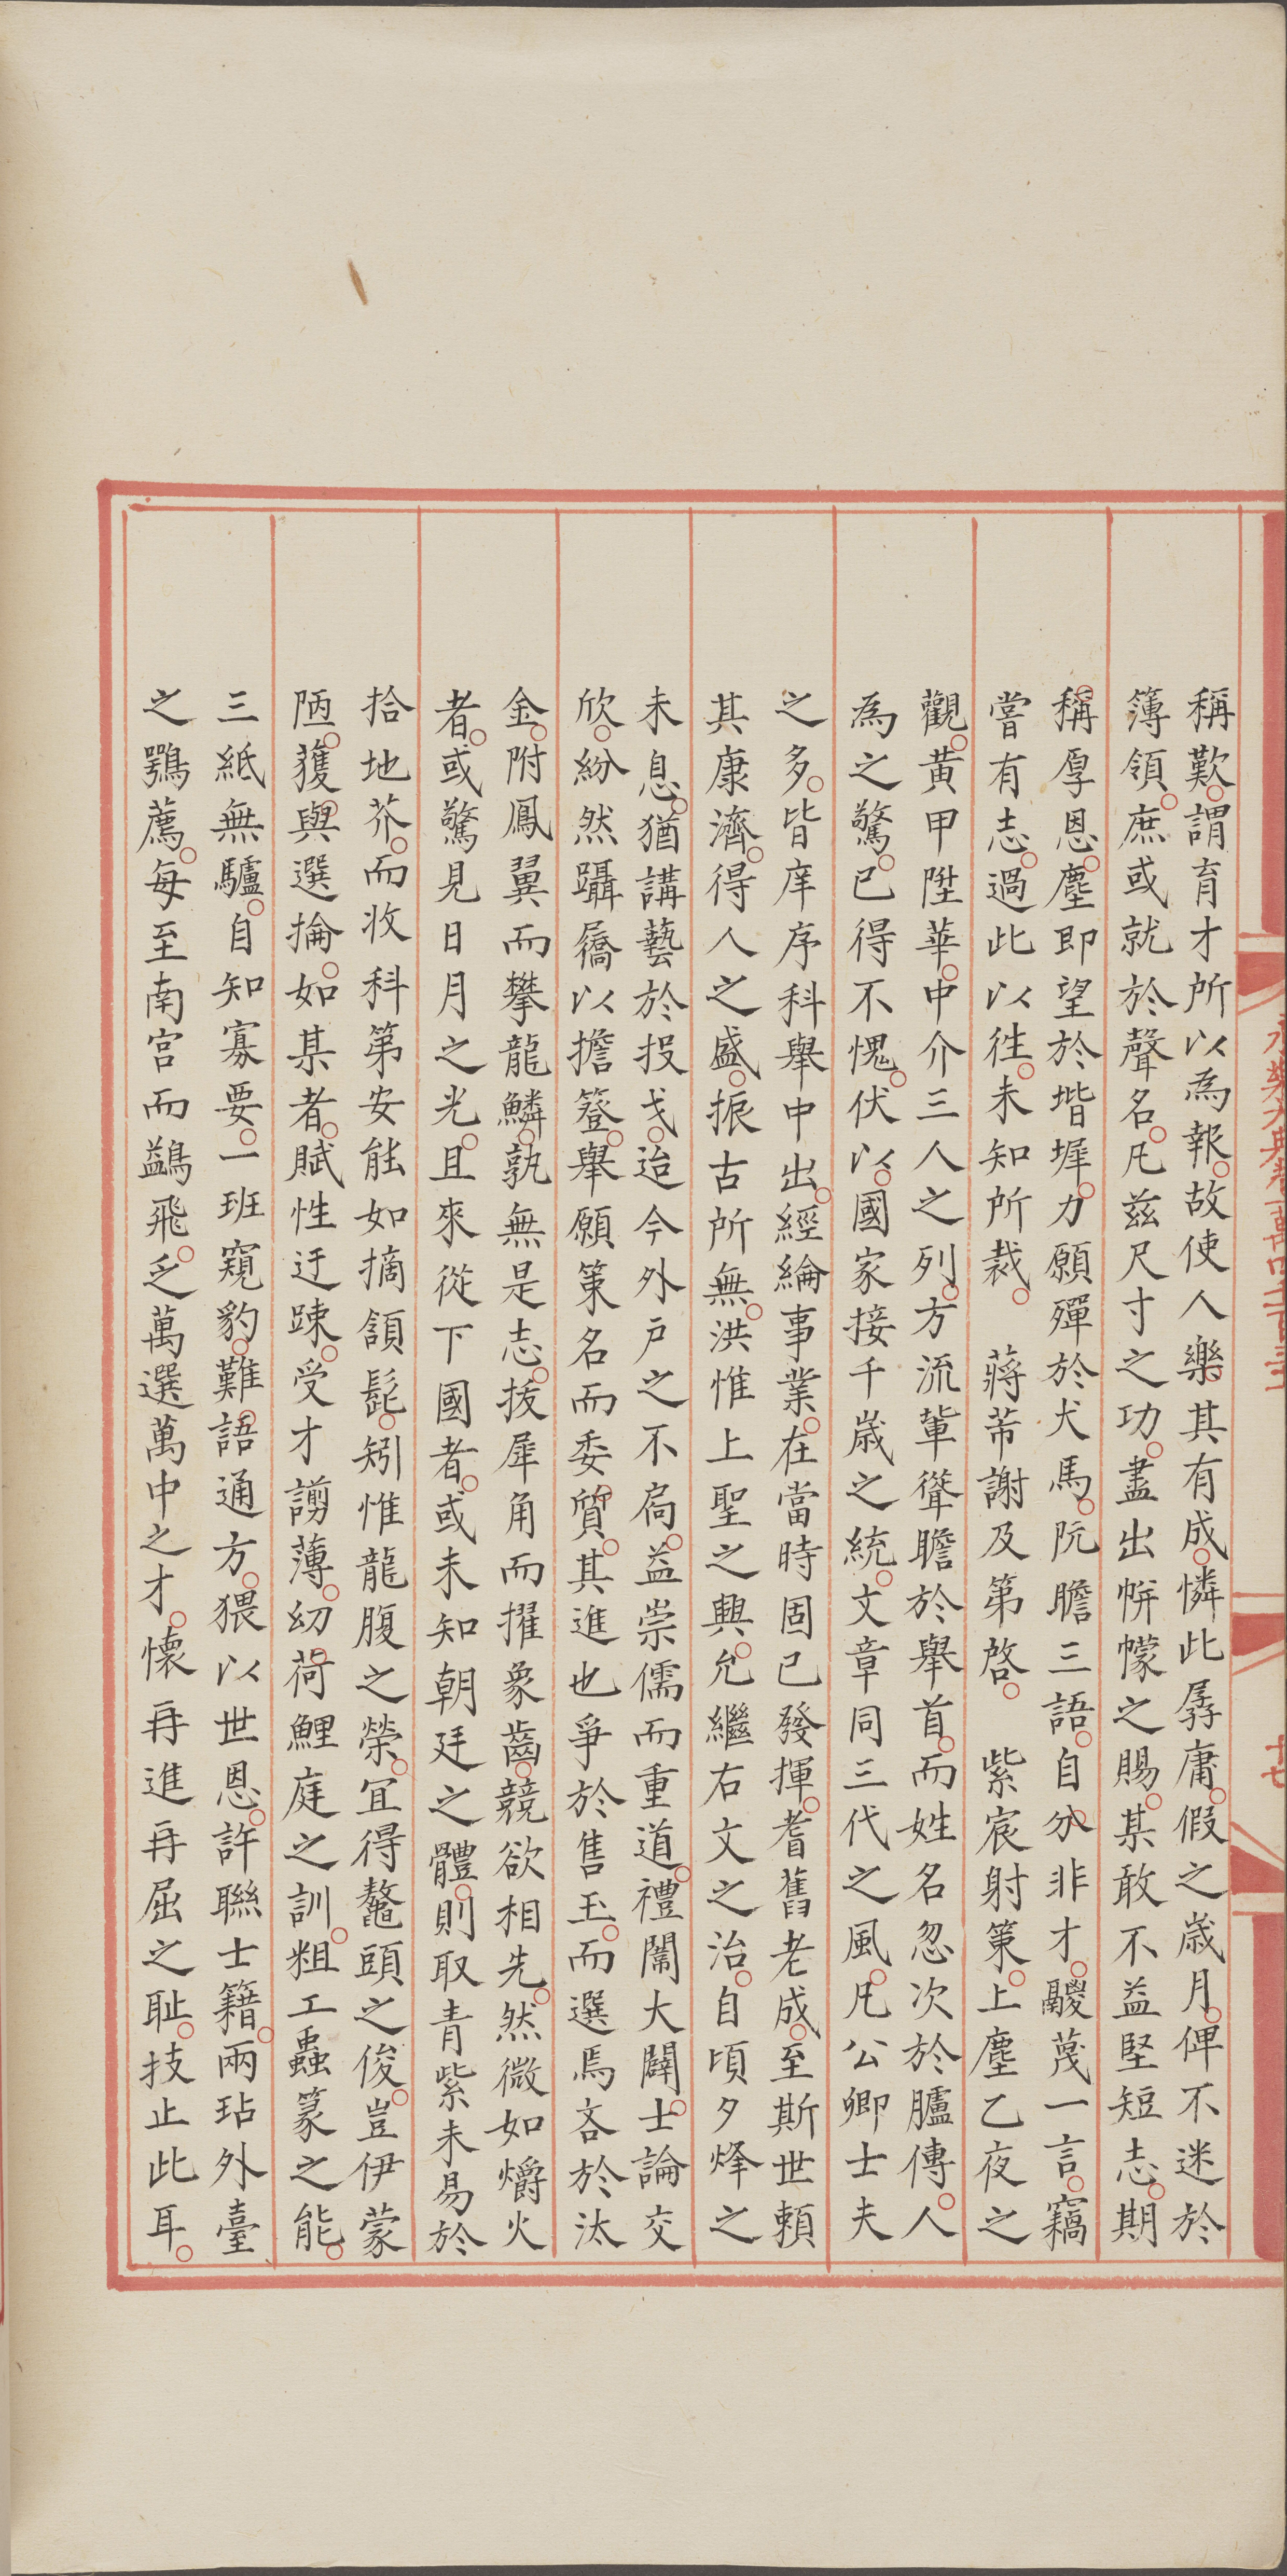 稱歎謂育才所以為報故使人樂其有成憐此孱庸假之歲月俾不迷於
簿領庶或就於聲名凡茲尺寸之功盡出帡幪之賜某敢不益堅短志期
稱厚恩塵即望於堦墀力願殫於犬馬阮瞻三語自分非才鬷蔑一言竊
嘗有志過此以徃未知所裁　蔣芾謝及第啓　紫宸射策上塵乙夜之
觀黃甲陞華中介三人之列方流輩聳瞻於舉首而姓名忽次於臚傳人
為之驚已得不愧伏以國家接千歲之統文章同三代之風凡公卿士夫
之多皆庠序科舉中出經綸事業在當時固已發揮耆舊老成至斯世頼
其康濟得人之盛振古所無洪惟上聖之興允繼右文之治自頃夕烽之
未息猶講藝於投戈迨今外戶之不扃益崇儒而重道禮闈大闢士論交
欣紛然躡屩以擔簦舉願策名而委質其進也爭於售玉而選焉吝於汰
金附鳳翼而攀龍鱗孰無是志拔犀角而擢象齒競欲相先然微如爝火
者或驚見日月之光且來從下國者或未知朝廷之體則取青紫未易於
拾地芥而收科第安能如摘頷髭矧惟龍腹之榮冝得鼇頭之俊豈伊蒙
陋獲與選掄如某者賦性迂踈受才謭薄幼荷鯉庭之訓粗工蟲篆之能
三紙無驢自知寡要一班窺豹難語通方猥以世恩許聯士籍兩玷外臺
之鶚薦每至南宫而鷁飛乏萬選萬中之才懷再進再屈之恥技止此耳
永樂大典卷一萬四百
十七